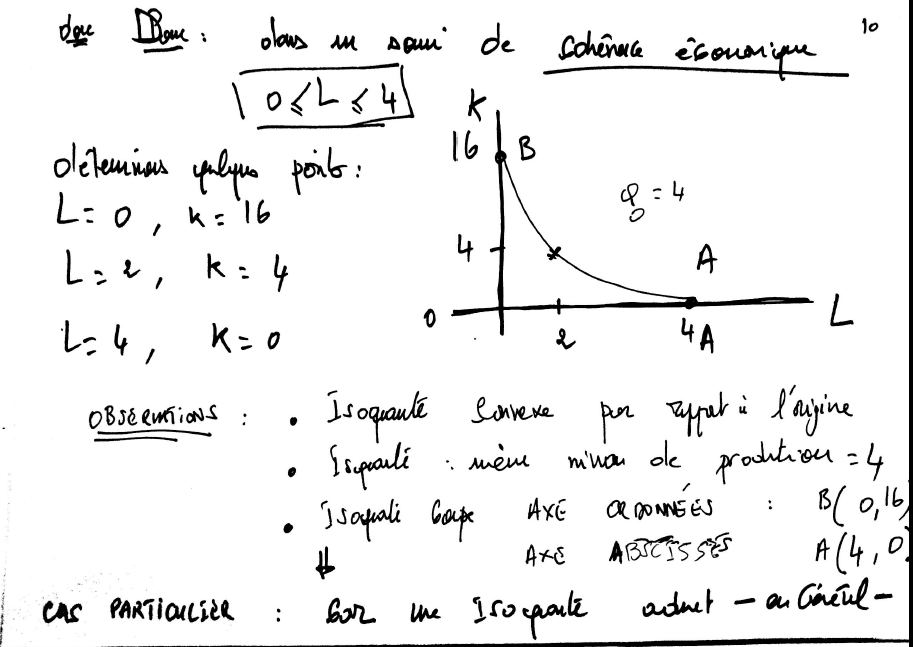 10
donc : dans un souci de cohérence économique
0 ≤ L ≤ 4
déterminons quelques points :
L = 0 , k = 16
L = 2 , k = 4
L = 4 , k = 0
K
16 B
φ₀ = 4
4
A
0
2
4 A
L
OBSERVATIONS :
• Isoquante convexe par rapport à l'origine
• Isoquante : même niveau de production = 4
• Isoquante coupe AXE ORDONNÉES : B( 0,16)
⇓ AXE ABSCISSES A(4, 0)
CAS PARTICULIER : car une Isoquante admet – en Général –